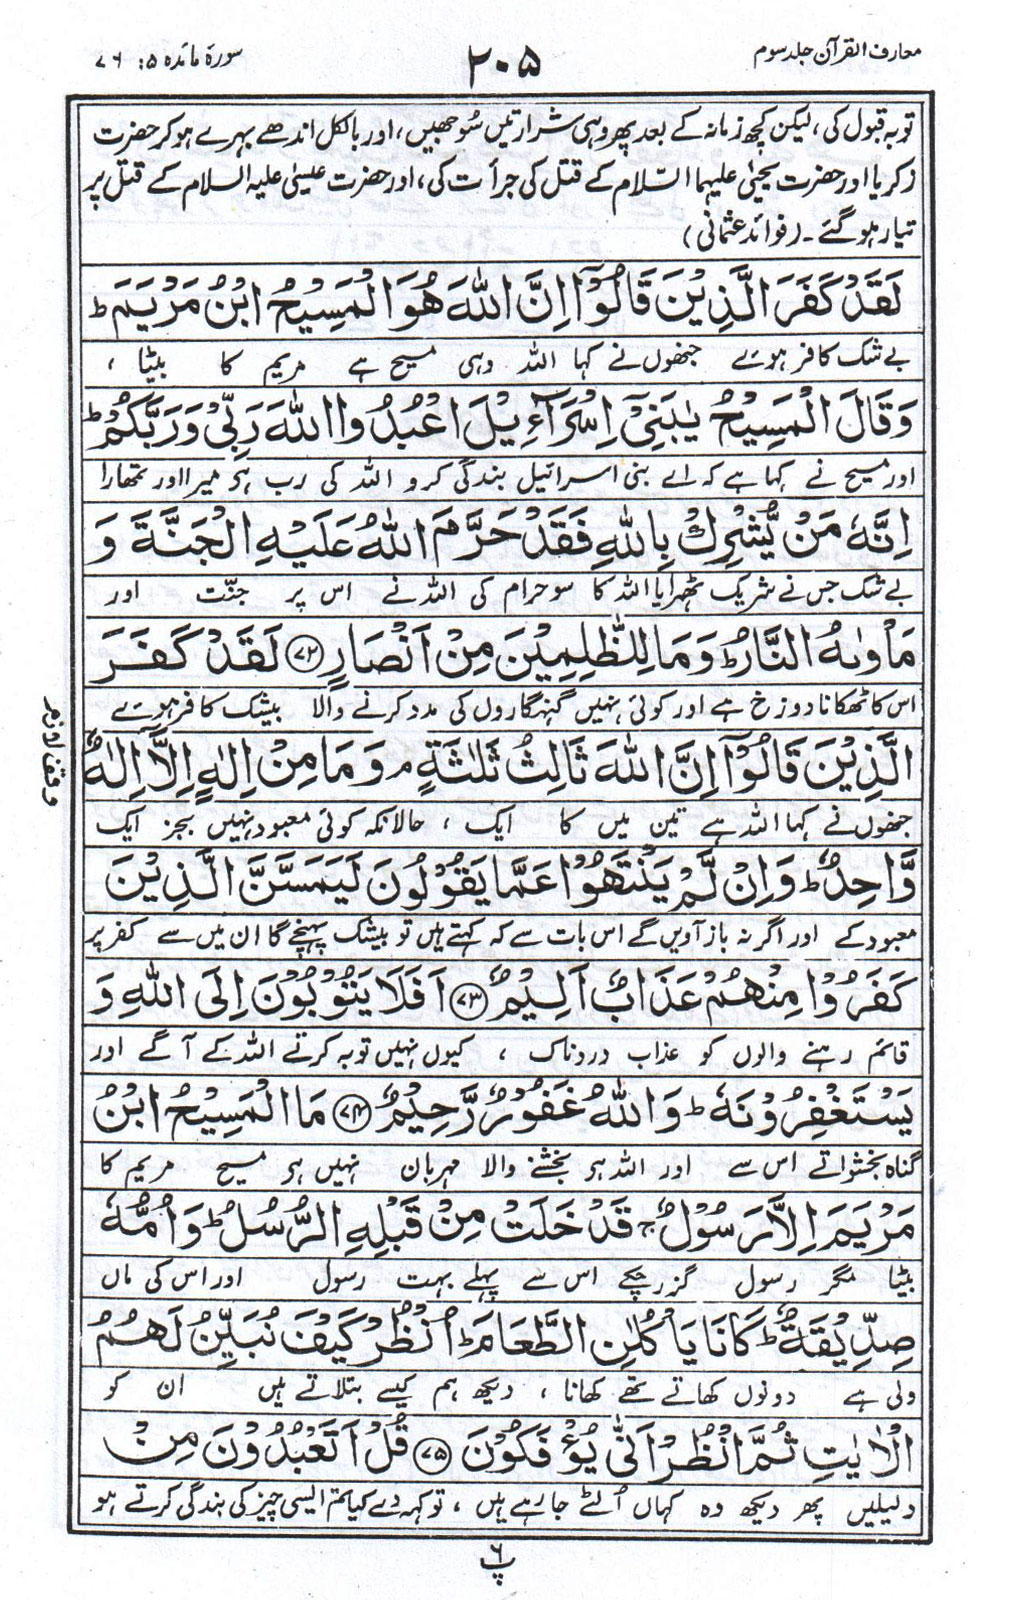 معارف القرآن جلد سوم
۲۰۵
سورۃ مائدہ ۵: ۷۶
توبہ قبول کی، لیکن کچھ زمانہ کے بعد پھر وہی شرارتیں سُوجھیں، اور بالکل اندھے بہرے ہو کر حضرت
زکریا اور حضرت یحییٰ علیہما السّلام کے قتل کی جرأت کی، اور حضرت عیسیٰ علیہ السلام کے قتل پر
تیار ہو گئے۔ (فوائد عثمانی)
لَقَدْ كَفَرَ الَّذِيْنَ قَالُوْٓا اِنَّ اللّٰهَ هُوَ الْمَسِيْحُ ابْنُ مَرْيَمَ ؕ
بے شک کافر ہوئے جنھوں نے کہا اللہ وہی مسیح ہے مریم کا بیٹا،
وَقَالَ الْمَسِيْحُ يٰبَنِيْٓ اِسْرَآءِيْلَ اعْبُدُوا اللّٰهَ رَبِّيْ وَرَبَّكُمْ ؕ
اور مسیح نے کہا ہے کہ اے بنی اسرائیل بندگی کرو اللہ کی رب ہے میرا اور تمھارا
اِنَّهٗ مَنْ يُّشْرِكْ بِاللّٰهِ فَقَدْ حَرَّمَ اللّٰهُ عَلَيْهِ الْجَنَّةَ وَ
بے شک جس نے شریک ٹھہرایا اللہ کا سو حرام کی اللہ نے اس پر جنّت اور
مَاْوٰىهُ النَّارُ ؕ وَمَا لِلظّٰلِمِيْنَ مِنْ اَنْصَارٍ ﴿۷۲﴾ لَقَدْ كَفَرَ
اس کا ٹھکانا دوزخ ہے اور کوئی نہیں گنہگاروں کی مدد کرنے والا بیشک کافر ہوئے
وقف لازم
الَّذِيْنَ قَالُوْٓا اِنَّ اللّٰهَ ثَالِثُ ثَلٰثَةٍ ۘ وَمَا مِنْ اِلٰهٍ اِلَّآ اِلٰهٌ
جنھوں نے کہا اللہ ہے تین میں کا ایک، حالانکہ کوئی معبود نہیں بجز ایک
وَّاحِدٌ ؕ وَاِنْ لَّمْ يَنْتَهُوْا عَمَّا يَقُوْلُوْنَ لَيَمَسَّنَّ الَّذِيْنَ
معبود کے اور اگر نہ باز آویں گے اس بات سے کہ کہتے ہیں تو بیشک پہنچے گا ان میں سے کفر پر
كَفَرُوْا مِنْهُمْ عَذَابٌ اَلِيْمٌ ﴿۷۳﴾ اَفَلَا يَتُوْبُوْنَ اِلَى اللّٰهِ وَ
قائم رہنے والوں کو عذاب دردناک، کیوں نہیں توبہ کرتے اللہ کے آگے اور
يَسْتَغْفِرُوْنَهٗ ؕ وَاللّٰهُ غَفُوْرٌ رَّحِيْمٌ ﴿۷۴﴾ مَا الْمَسِيْحُ ابْنُ
گناہ بخشواتے اس سے اور اللہ ہے بخشنے والا مہربان نہیں ہے مسیح مریم کا
مَرْيَمَ اِلَّا رَسُوْلٌ ۚ قَدْ خَلَتْ مِنْ قَبْلِهِ الرُّسُلُ ؕ وَاُمُّهٗ
بیٹا مگر رسول گزر چکے اس سے پہلے بہت رسول اور اس کی ماں
صِدِّيْقَةٌ ؕ كَانَا يَاْكُلٰنِ الطَّعَامَ ؕ اُنْظُرْ كَيْفَ نُبَيِّنُ لَهُمُ
ولی ہے دونوں کھاتے تھے کھانا، دیکھ ہم کیسے بتلاتے ہیں ان کو
الْاٰيٰتِ ثُمَّ انْظُرْ اَنّٰى يُؤْفَكُوْنَ ﴿۷۵﴾ قُلْ اَتَعْبُدُوْنَ مِنْ
دلیلیں پھر دیکھ وہ کہاں اُلٹے جا رہے ہیں، تو کہہ دے کیا تم ایسی چیز کی بندگی کرتے ہو
پ ۶